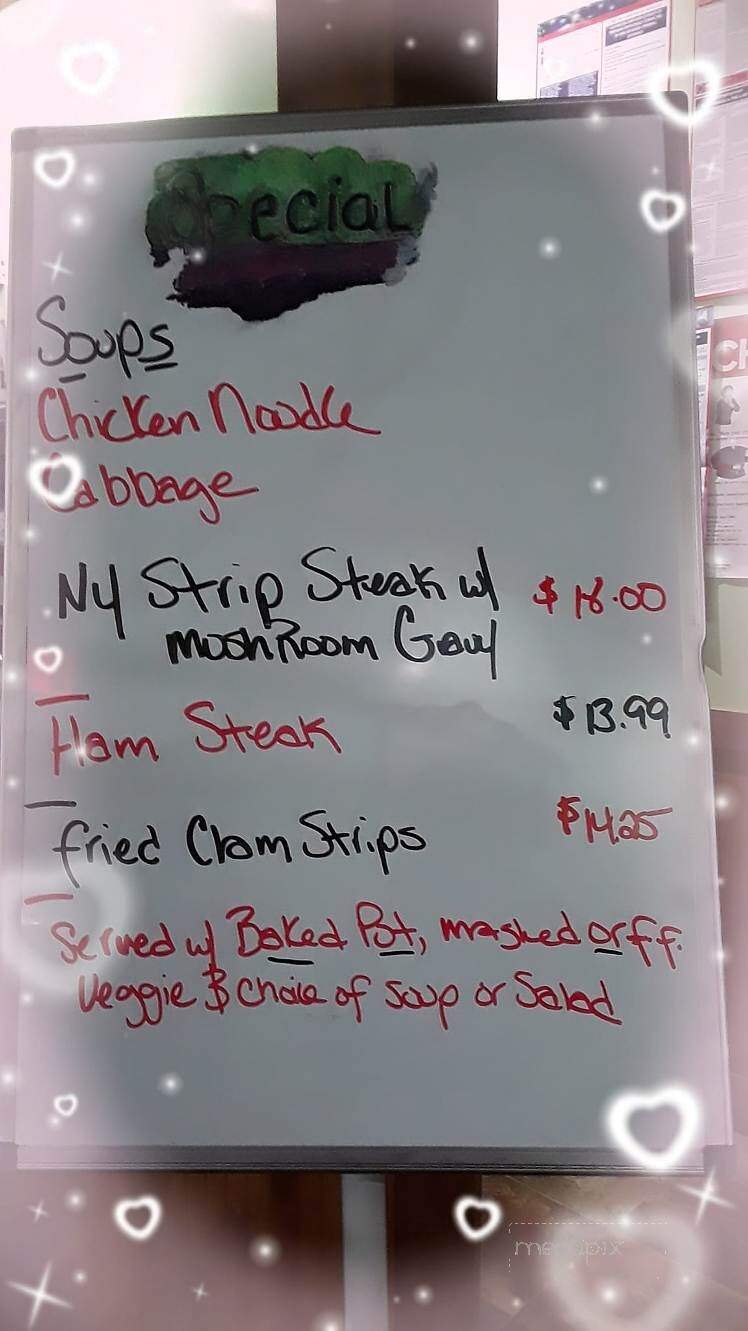 Special
Soups
Chicken Noodle
Cabbage
NY Strip Steak w/ $18.00
mushRoom
Ham Steak $13.99
fried Clam Strips $14.25
Served w/ Baked Pot, mashed or f.f.
Veggie & Choice of Soup or Salad
menupix